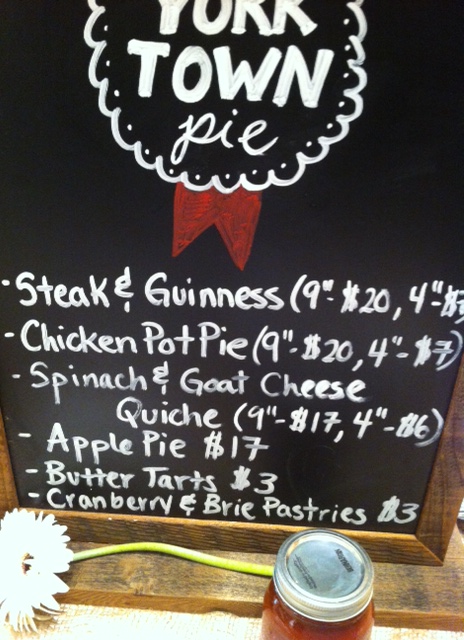 YORK
TOWN
pie
- Steak & Guinness (9"-$20, 4"-$7
- Chicken Pot Pie (9"-$20, 4"-$7)
- Spinach & Goat Cheese
Quiche (9"-$17, 4"-$6)
- Apple Pie $17
- Butter Tarts $3
- Cranberry & Brie Pastries $3